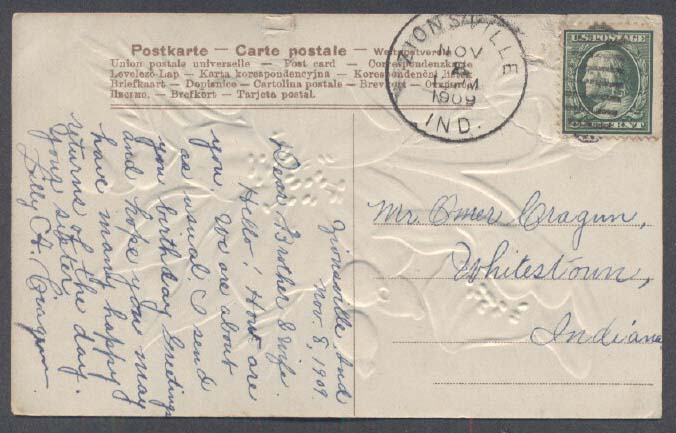 Postkarte — Carte postale — Weltpostverein
Union postale universelle — Post card — Correspondenzkarte
Levelező-Lap — Karta korespondencyjna — Korespondenční lístek
Briefkaart — Dopisnice — Cartolina postale — Brevkort — Открытое
Письмо. — Brefkort — Tarjeta postal.
ZIONSVILLE
NOV
8
M
1909
IND.
U.S. POSTAGE
CENT
Zionsville Ind
Nov. 8, 1909.
Dear Brother & Wife.
Hello! How are
you. We are about
as usual. I send
you birthday Greetings
and hope you may
have many happy
returns of the day.
Your sister
Lilly A. Cragun
Mr. Omer Cragun,
Whitestown,
Indiana